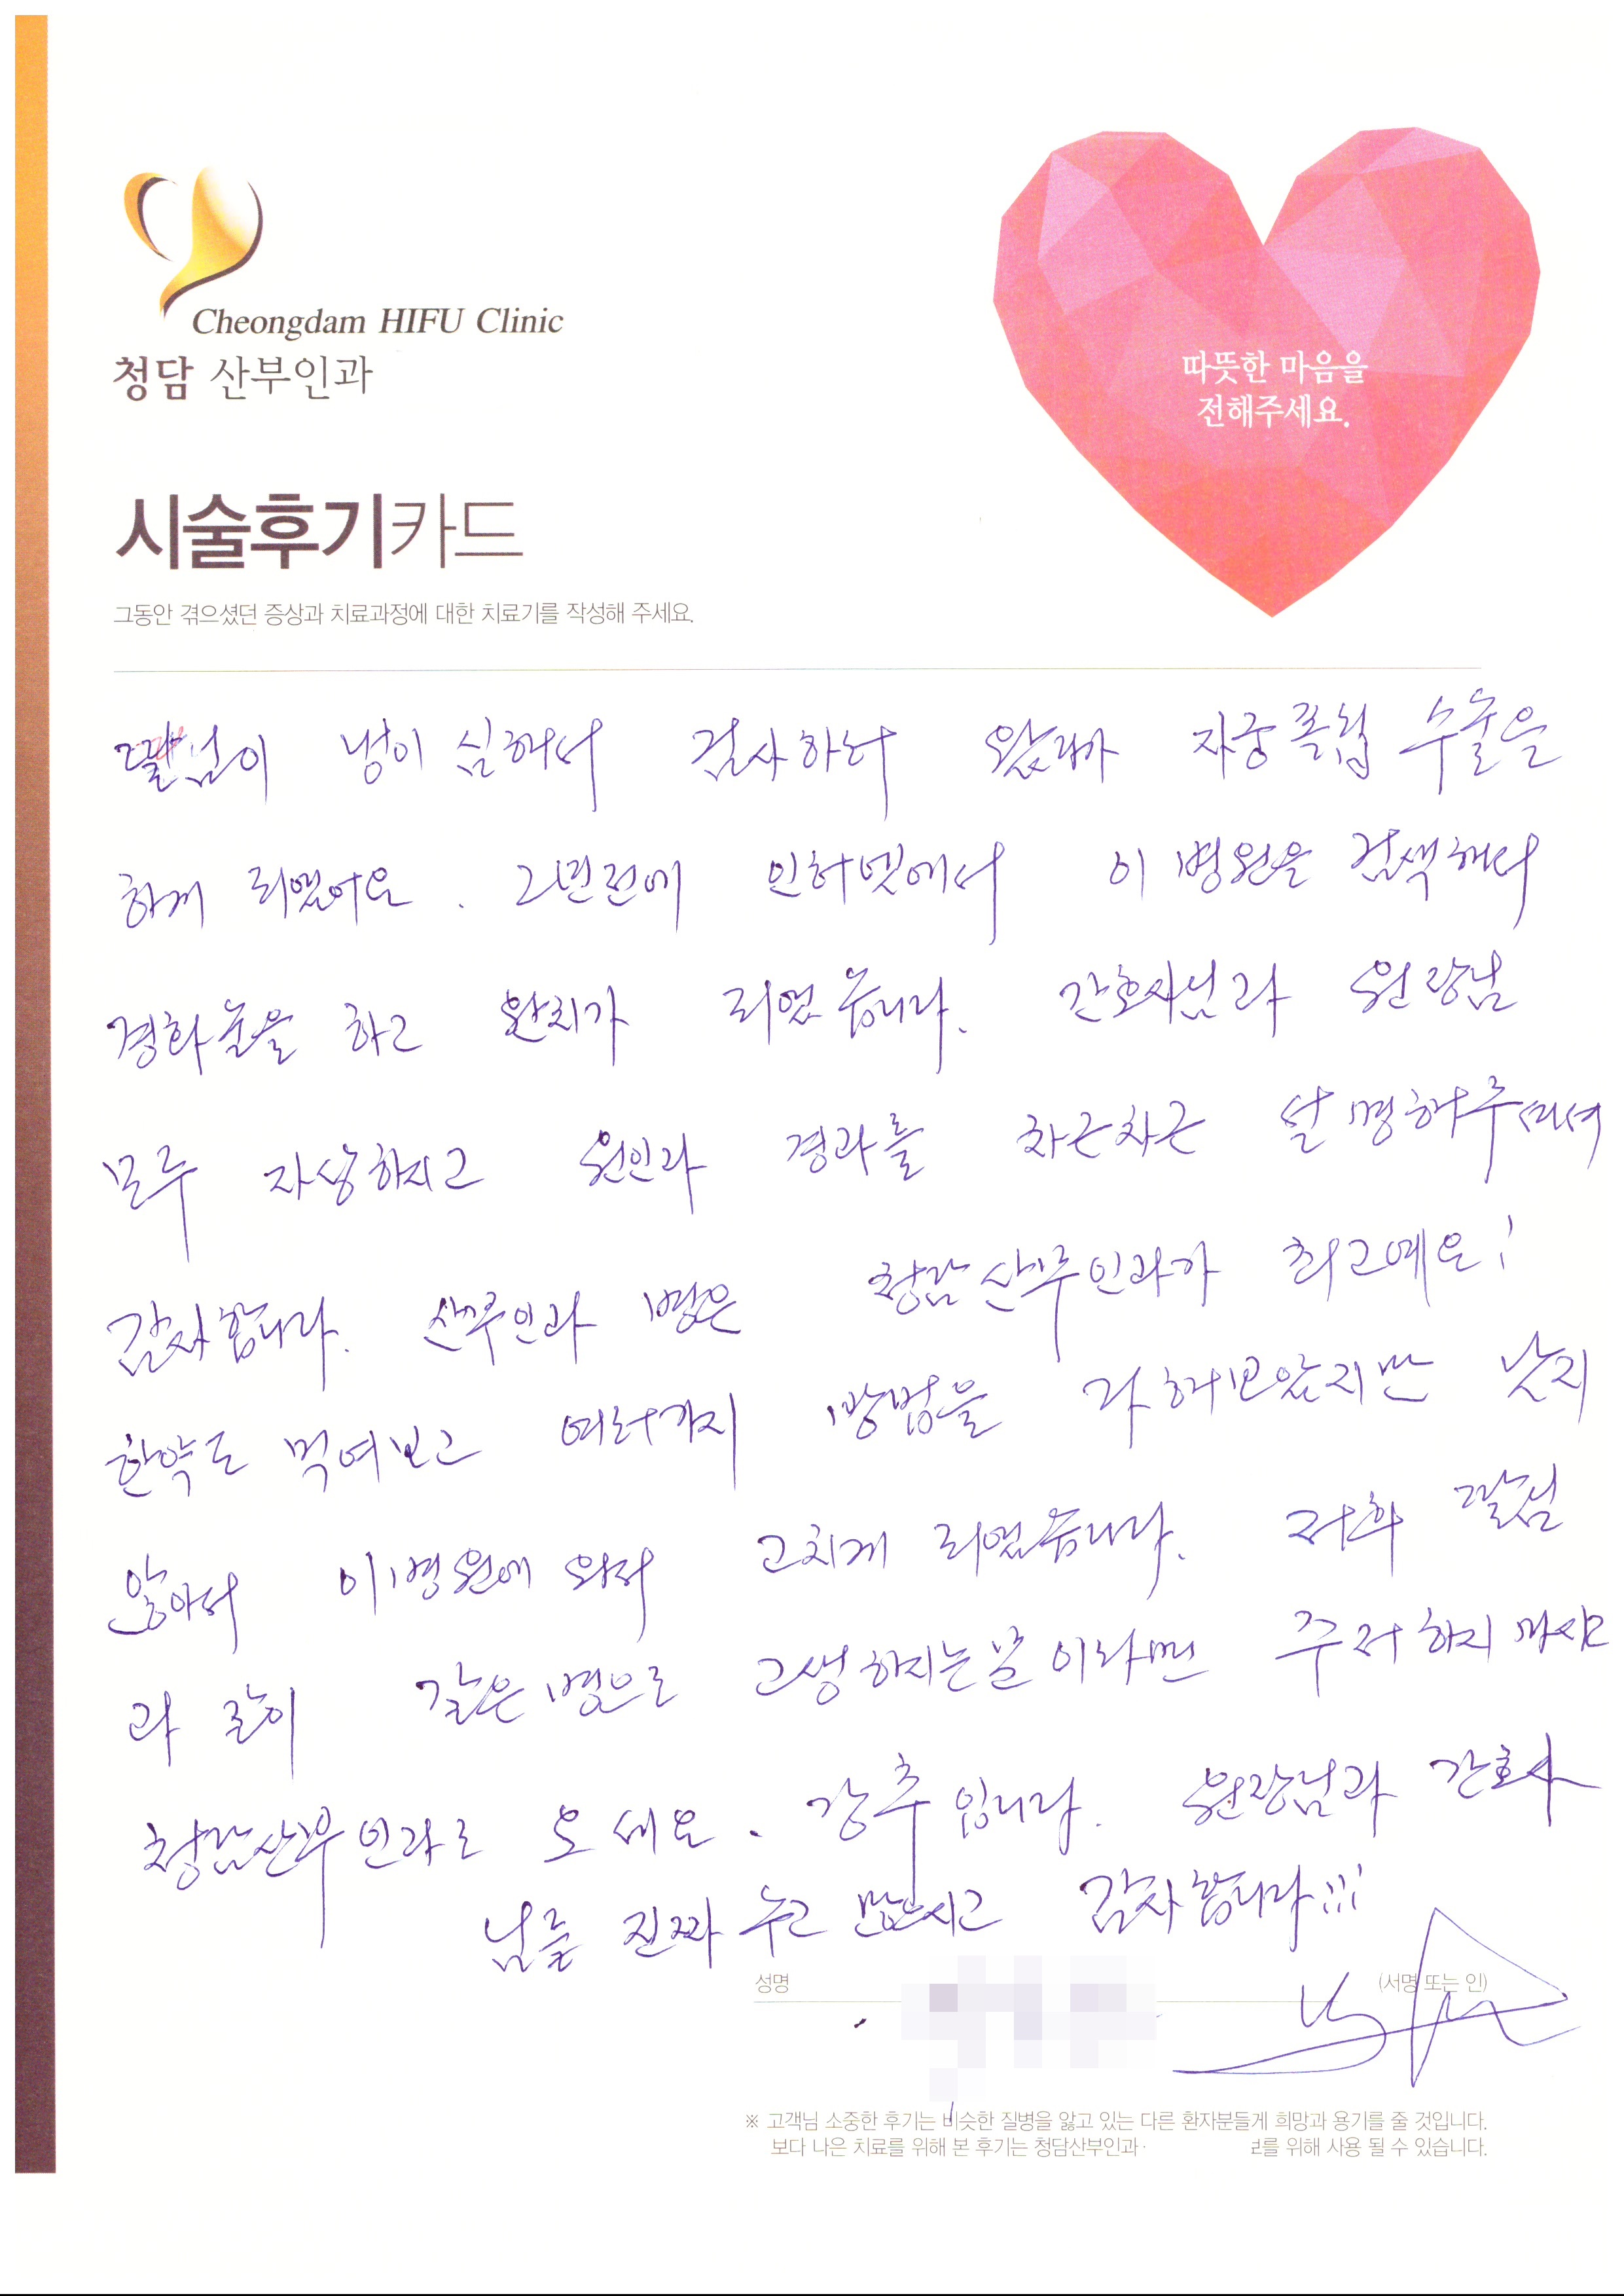 Cheongdam HIFU Clinic
청담 산부인과
따뜻한 마음을
전해주세요.
시술후기카드
그동안 겪으셨던 증상과 치료과정에 대한 치료기를 작성해 주세요.
딸님이 냉이 심해서 검사하러 왔다가 자궁폴립 수술을
하게 되였어요. 2년전에 인터넷에서 이 병원을 검색해서
경화술을 하고 완치가 되였습니다. 간호사님과 원장님
모두 자상하시고 원인과 경과를 차근차근 설명해주셔서
감사합니다. 산부인과 병은 청담산부인과가 최고예요!
한약도 먹여보고 여러가지 방법을 다해보았지만 낫지
않아서 이병원에 와서 고치게 되였습니다. 저희 딸님
과 같이 같은병으로 고생하시는분이라면 주저하지 마시고
청담산부인과로 오세요. 강추입니다. 원장님과 간호사
님들 진짜 수고 많으시고 감사합니다!!!
성명
(서명 또는 인)
※ 고객님 소중한 후기는 비슷한 질병을 앓고 있는 다른 환자분들게 희망과 용기를 줄 것입니다.
보다 나은 치료를 위해 본 후기는 청담산부인과 를 위해 사용 될 수 있습니다.